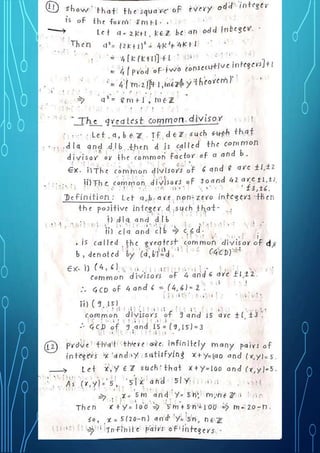 (11) show that the square of every odd integer
is of the form 8m+1.
→ Let a = 2k+1, k∈Z be an odd integer.
Then a² = (2k+1)² = 4k²+4k+1
= 4[k(k+1)]+1
= 4[prod of two consecutive integers]+1
= 4[m.2!]+1, m∈Z by theorem
⇒ a² = 8m+1, m∈Z
The greatest common divisor
Let a,b∈Z. If d∈Z such that
d|a and d|b then d is called the common
divisor or the common factor of a and b.
Ex. i) The common divisors of 6 and 8 are ±1,±2
ii) The common divisors of 30 and 42 are ±1,±2,
±3,±6.
Definition: Let a,b are non-zero integers then
the positive integer d such that
i) d|a and d|b
ii) c|a and c|b ⇒ c≤d.
is called the greatest common divisor of a
b, denoted by (a,b)=d. (GCD)
Ex. i) (4,6)
common divisors of 4 and 6 are ±1,±2.
∴ GCD of 4 and 6 = (4,6)=2
ii) (9,15)
common divisors of 9 and 15 are ±1,±3
∴ GCD of 9 and 15 = (9,15)=3
(12) Prove that there are infinitely many pairs of
integers x and y satisfying x+y=100 and (x,y)=5.
→ Let x,y∈Z such that x+y=100 and (x,y)=5.
As (x,y)=5, 5|x and 5|y
⇒ x=5m and y=5n, m,n∈Z
Then x+y=100 ⇒ 5m+5n=100 ⇒ m=20-n.
so, x=5(20-n) and y=5n, n∈Z
⇒ Infinite pairs of integers.